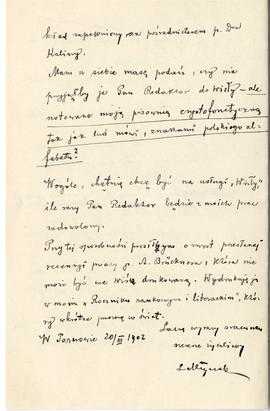 kład zapewniony za pośrednictwem p. Dra
Kaliny.
Mam u siebie masę podań, czy nie
przyjąłby je Pan Redaktor do Wisły – ale
notowane moją pisownią czystofonetyczną
tak jak lud mówi, znakami polskiego al-
fabetu?
Wogóle, chętnie chcę być na usługi „Wisły",
ile razy Pan Redaktor będzie z moich prac
zadowolony.
Przy tej sposobności prosiłbym o zwrot przesłanej
recenzyi pracy p. A. Brücknera, która nie
może być we Wiśle drukowaną. Wydrukuję ją
w moim „Roczniku naukowym i literackim", któ-
ry wkrótce puszczę w świat.
Łączę wyrazy szacunku
W Tarnowie 20/III 1902
szczerze życzliwy